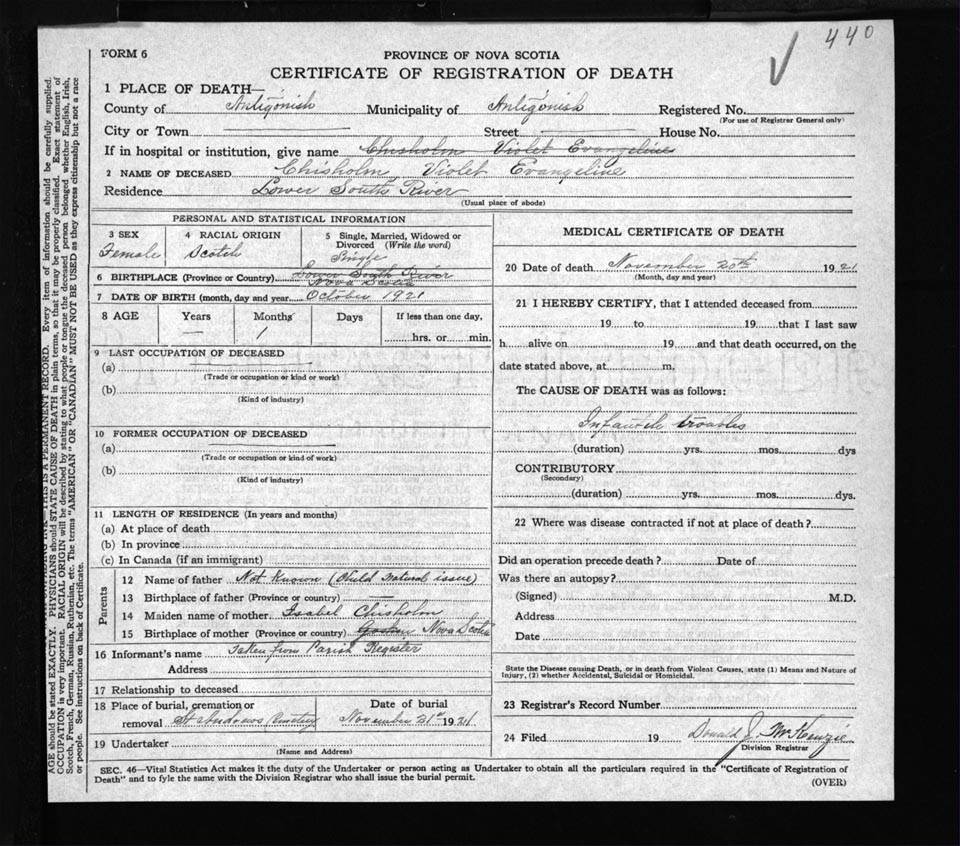 440
FORM 6
PROVINCE OF NOVA SCOTIA
CERTIFICATE OF REGISTRATION OF DEATH
1 PLACE OF DEATH—
County of Antigonish Municipality of Antigonish Registered No.
(For use of Registrar General only)
City or Town Street House No.
If in hospital or institution, give name Chisholm Violet Evangeline
2 NAME OF DECEASED Chisholm Violet Evangeline
Residence Lower South River
(Usual place of abode)
PERSONAL AND STATISTICAL INFORMATION
3 SEX 4 RACIAL ORIGIN 5 Single, Married, Widowed or Divorced (Write the word)
Female Scotch Single
6 BIRTHPLACE (Province or Country) Lower South River
Nova Scotia
7 DATE OF BIRTH (month, day and year) October 1921
8 AGE Years Months Days If less than one day,
— 1 hrs. or min.
9 LAST OCCUPATION OF DECEASED
(a)
(Trade or occupation or kind or work)
(b)
(Kind of industry)
10 FORMER OCCUPATION OF DECEASED
(a)
(Trade or occupation or kind of work)
(b)
(Kind of industry)
11 LENGTH OF RESIDENCE (In years and months)
(a) At place of death
(b) In province
(c) In Canada (if an immigrant)
Parents
12 Name of father Not Known (Child Natural issue)
13 Birthplace of father (Province or country) —
14 Maiden name of mother Isabel Chisholm
15 Birthplace of mother (Province or country) Nova Scotia
16 Informant's name Taken from Parish Register
Address
17 Relationship to deceased
18 Place of burial, cremation or Date of burial
removal St Andrews Cemetery November 21st 1921
19 Undertaker
(Name and Address)
MEDICAL CERTIFICATE OF DEATH
20 Date of death November 20th 1921
(Month, day and year)
21 I HEREBY CERTIFY, that I attended deceased from
19 to 19 that I last saw
h alive on 19 and that death occurred, on the
date stated above, at m.
The CAUSE OF DEATH was as follows:
Infantile troubles
(duration) yrs. mos. dys
CONTRIBUTORY
(Secondary)
(duration) yrs. mos. dys.
22 Where was disease contracted if not at place of death?
Did an operation precede death? Date of
Was there an autopsy?
(Signed) M.D.
Address
Date
State the Disease causing Death, or in death from Violent Causes, state (1) Means and Nature of
Injury, (2) whether Accidental, Suicidal or Homicidal.
23 Registrar's Record Number
24 Filed 19 Donald J. McKenzie
Division Registrar
SEC. 46—Vital Statistics Act makes it the duty of the Undertaker or person acting as Undertaker to obtain all the particulars required in the "Certificate of Registration of
Death" and to fyle the same with the Division Registrar who shall issue the burial permit.
(OVER)
THIS IS A PERMANENT RECORD. Every item of information should be carefully supplied.
AGE should be stated EXACTLY. PHYSICIANS should STATE CAUSE OF DEATH in plain terms, so that it may be properly classified. Exact statement of
OCCUPATION is very important. RACIAL ORIGIN will be described by stating to what people or tongue the deceased person belonged whether English, Irish,
Scotch, French, German, Russian, Ruthenian, etc. The terms "AMERICAN OR "CANADIAN" MUST NOT BE USED as they express citizenship but not a race
or people. See instructions on back of Certificate.